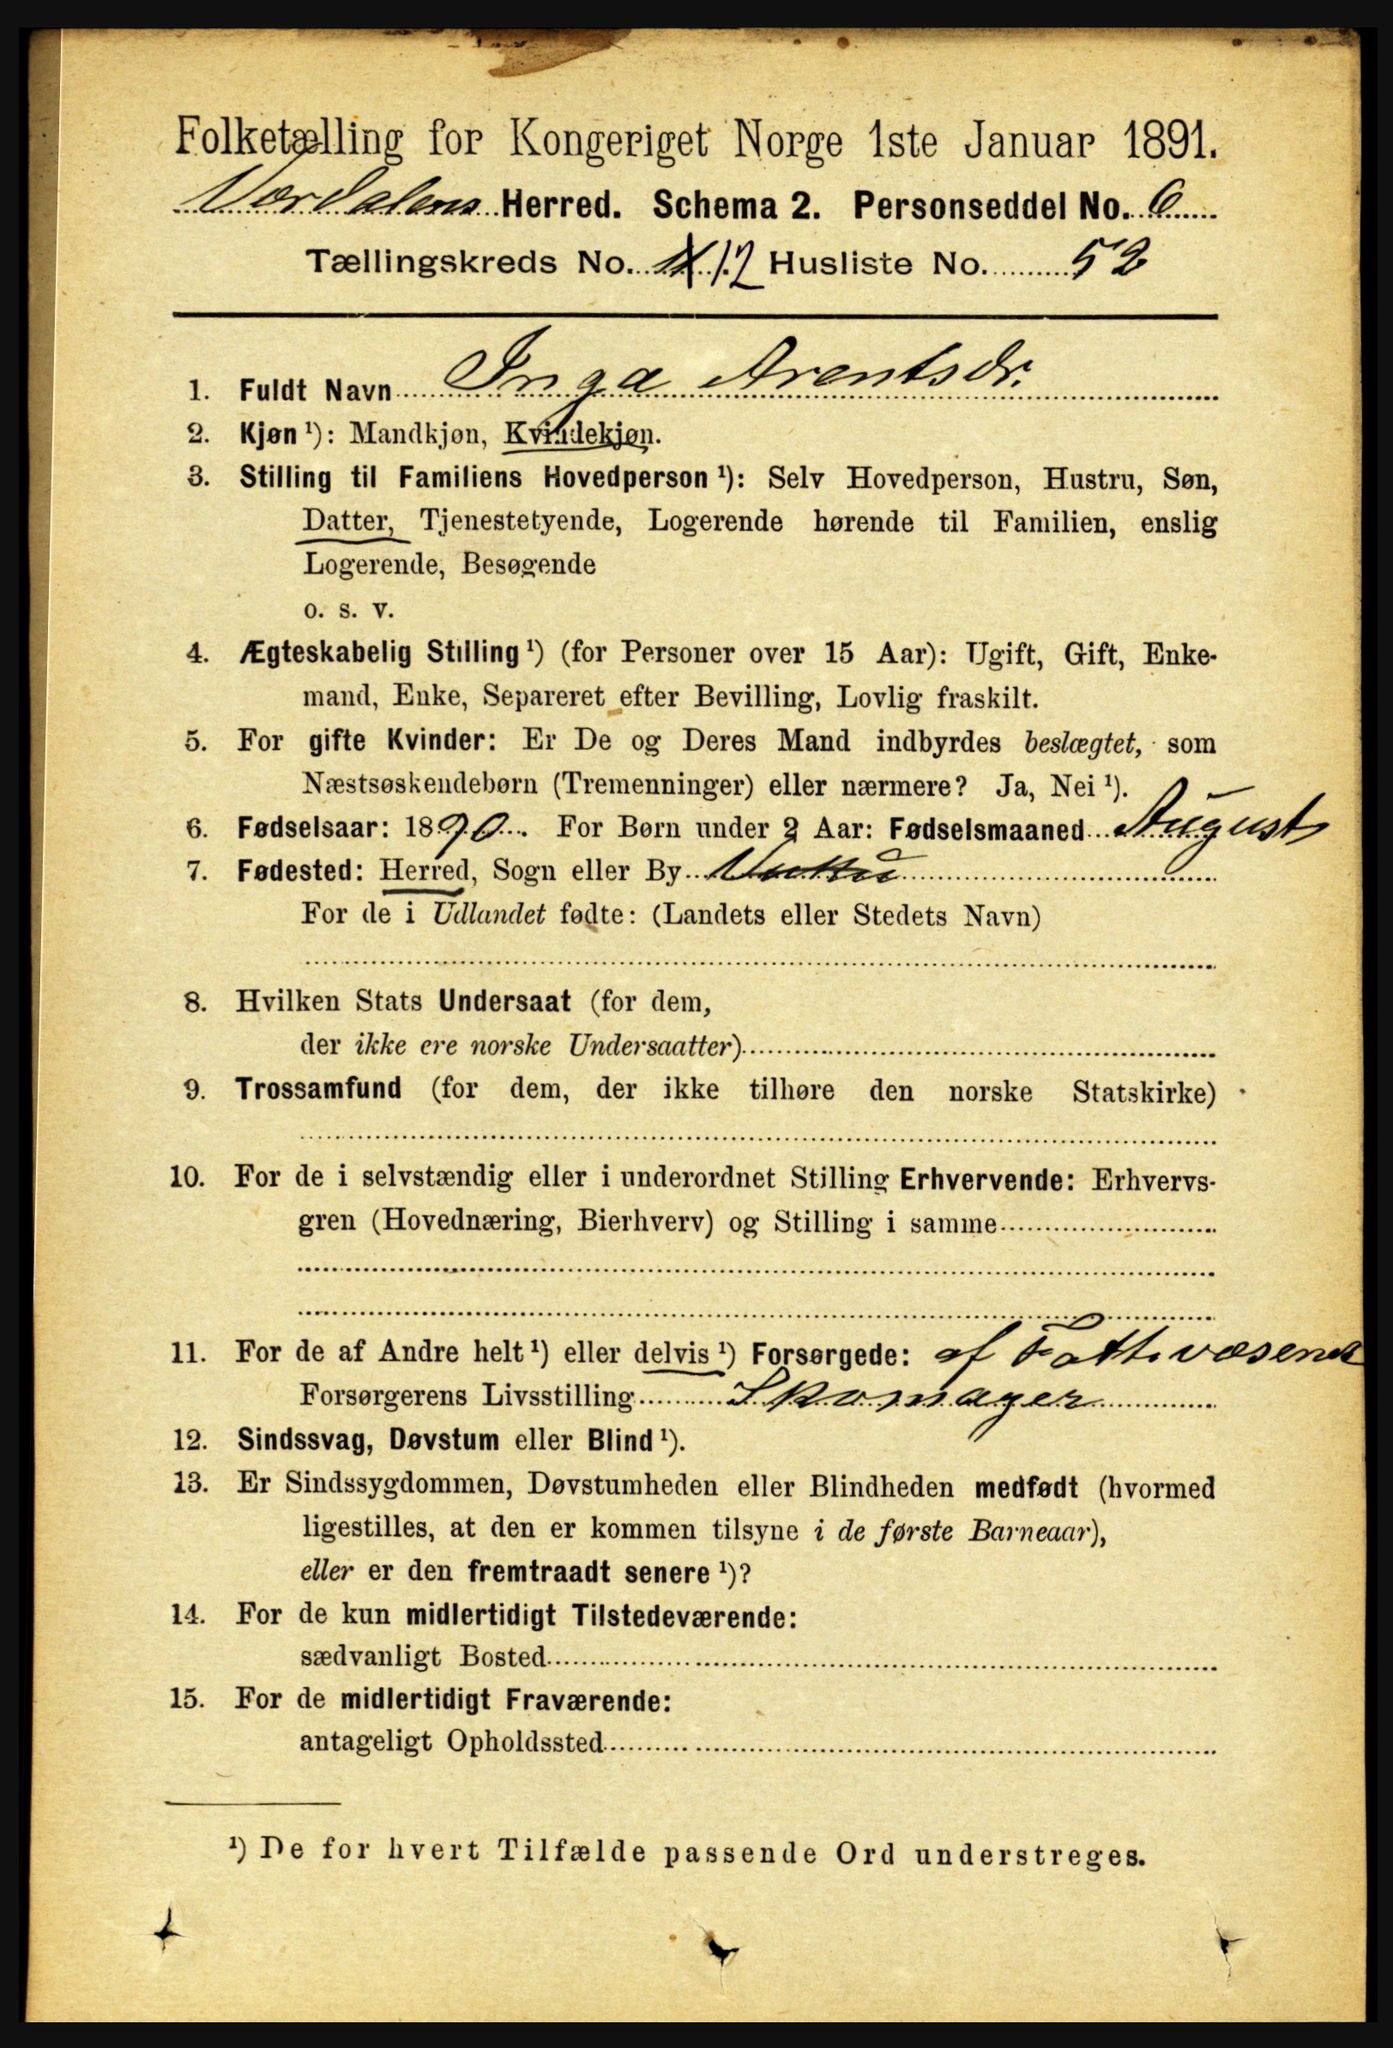 Folketælling for Kongeriget Norge 1ste Januar 1891.
Værdalens Herred. Schema 2. Personseddel No. 6
Tællingskreds No. 12 Husliste No. 52
1. Fuldt Navn Inga Arentsdr.
2. Kjøn ¹): Mandkjøn, Kvindekjøn.
3. Stilling til Familiens Hovedperson ¹): Selv Hovedperson, Hustru, Søn,
Datter, Tjenestetyende, Logerende hørende til Familien, enslig
Logerende, Besøgende
o. s. v.
4. Ægteskabelig Stilling ¹) (for Personer over 15 Aar): Ugift, Gift, Enke-
mand, Enke, Separeret efter Bevilling, Lovlig fraskilt.
5. For gifte Kvinder: Er De og Deres Mand indbyrdes beslægtet, som
Næstsøskendebørn (Tremenninger) eller nærmere? Ja, Nei ¹).
6. Fødselsaar: 1890. For Børn under 2 Aar: Fødselsmaaned August
7. Fødested: Herred, Sogn eller By Vukku
For de i Udlandet fødte: (Landets eller Stedets Navn)
8. Hvilken Stats Undersaat (for dem,
der ikke ere norske Undersaatter)
9. Trossamfund (for dem, der ikke tilhøre den norske Statskirke)
10. For de i selvstændig eller i underordnet Stilling Erhvervende: Erhvervs-
gren (Hovednæring, Bierhverv) og Stilling i samme
11. For de af Andre helt ¹) eller delvis ¹) Forsørgede: af Fattivæsenet
Forsørgerens Livsstilling Skomager
12. Sindssvag, Døvstum eller Blind ¹).
13. Er Sindssygdommen, Døvstumheden eller Blindheden medfødt (hvormed
ligestilles, at den er kommen tilsyne i de første Barneaar),
eller er den fremtraadt senere ¹)?
14. For de kun midlertidigt Tilstedeværende:
sædvanligt Bosted
15. For de midlertidigt Fraværende:
antageligt Opholdssted
¹) De for hvert Tilfælde passende Ord understreges.